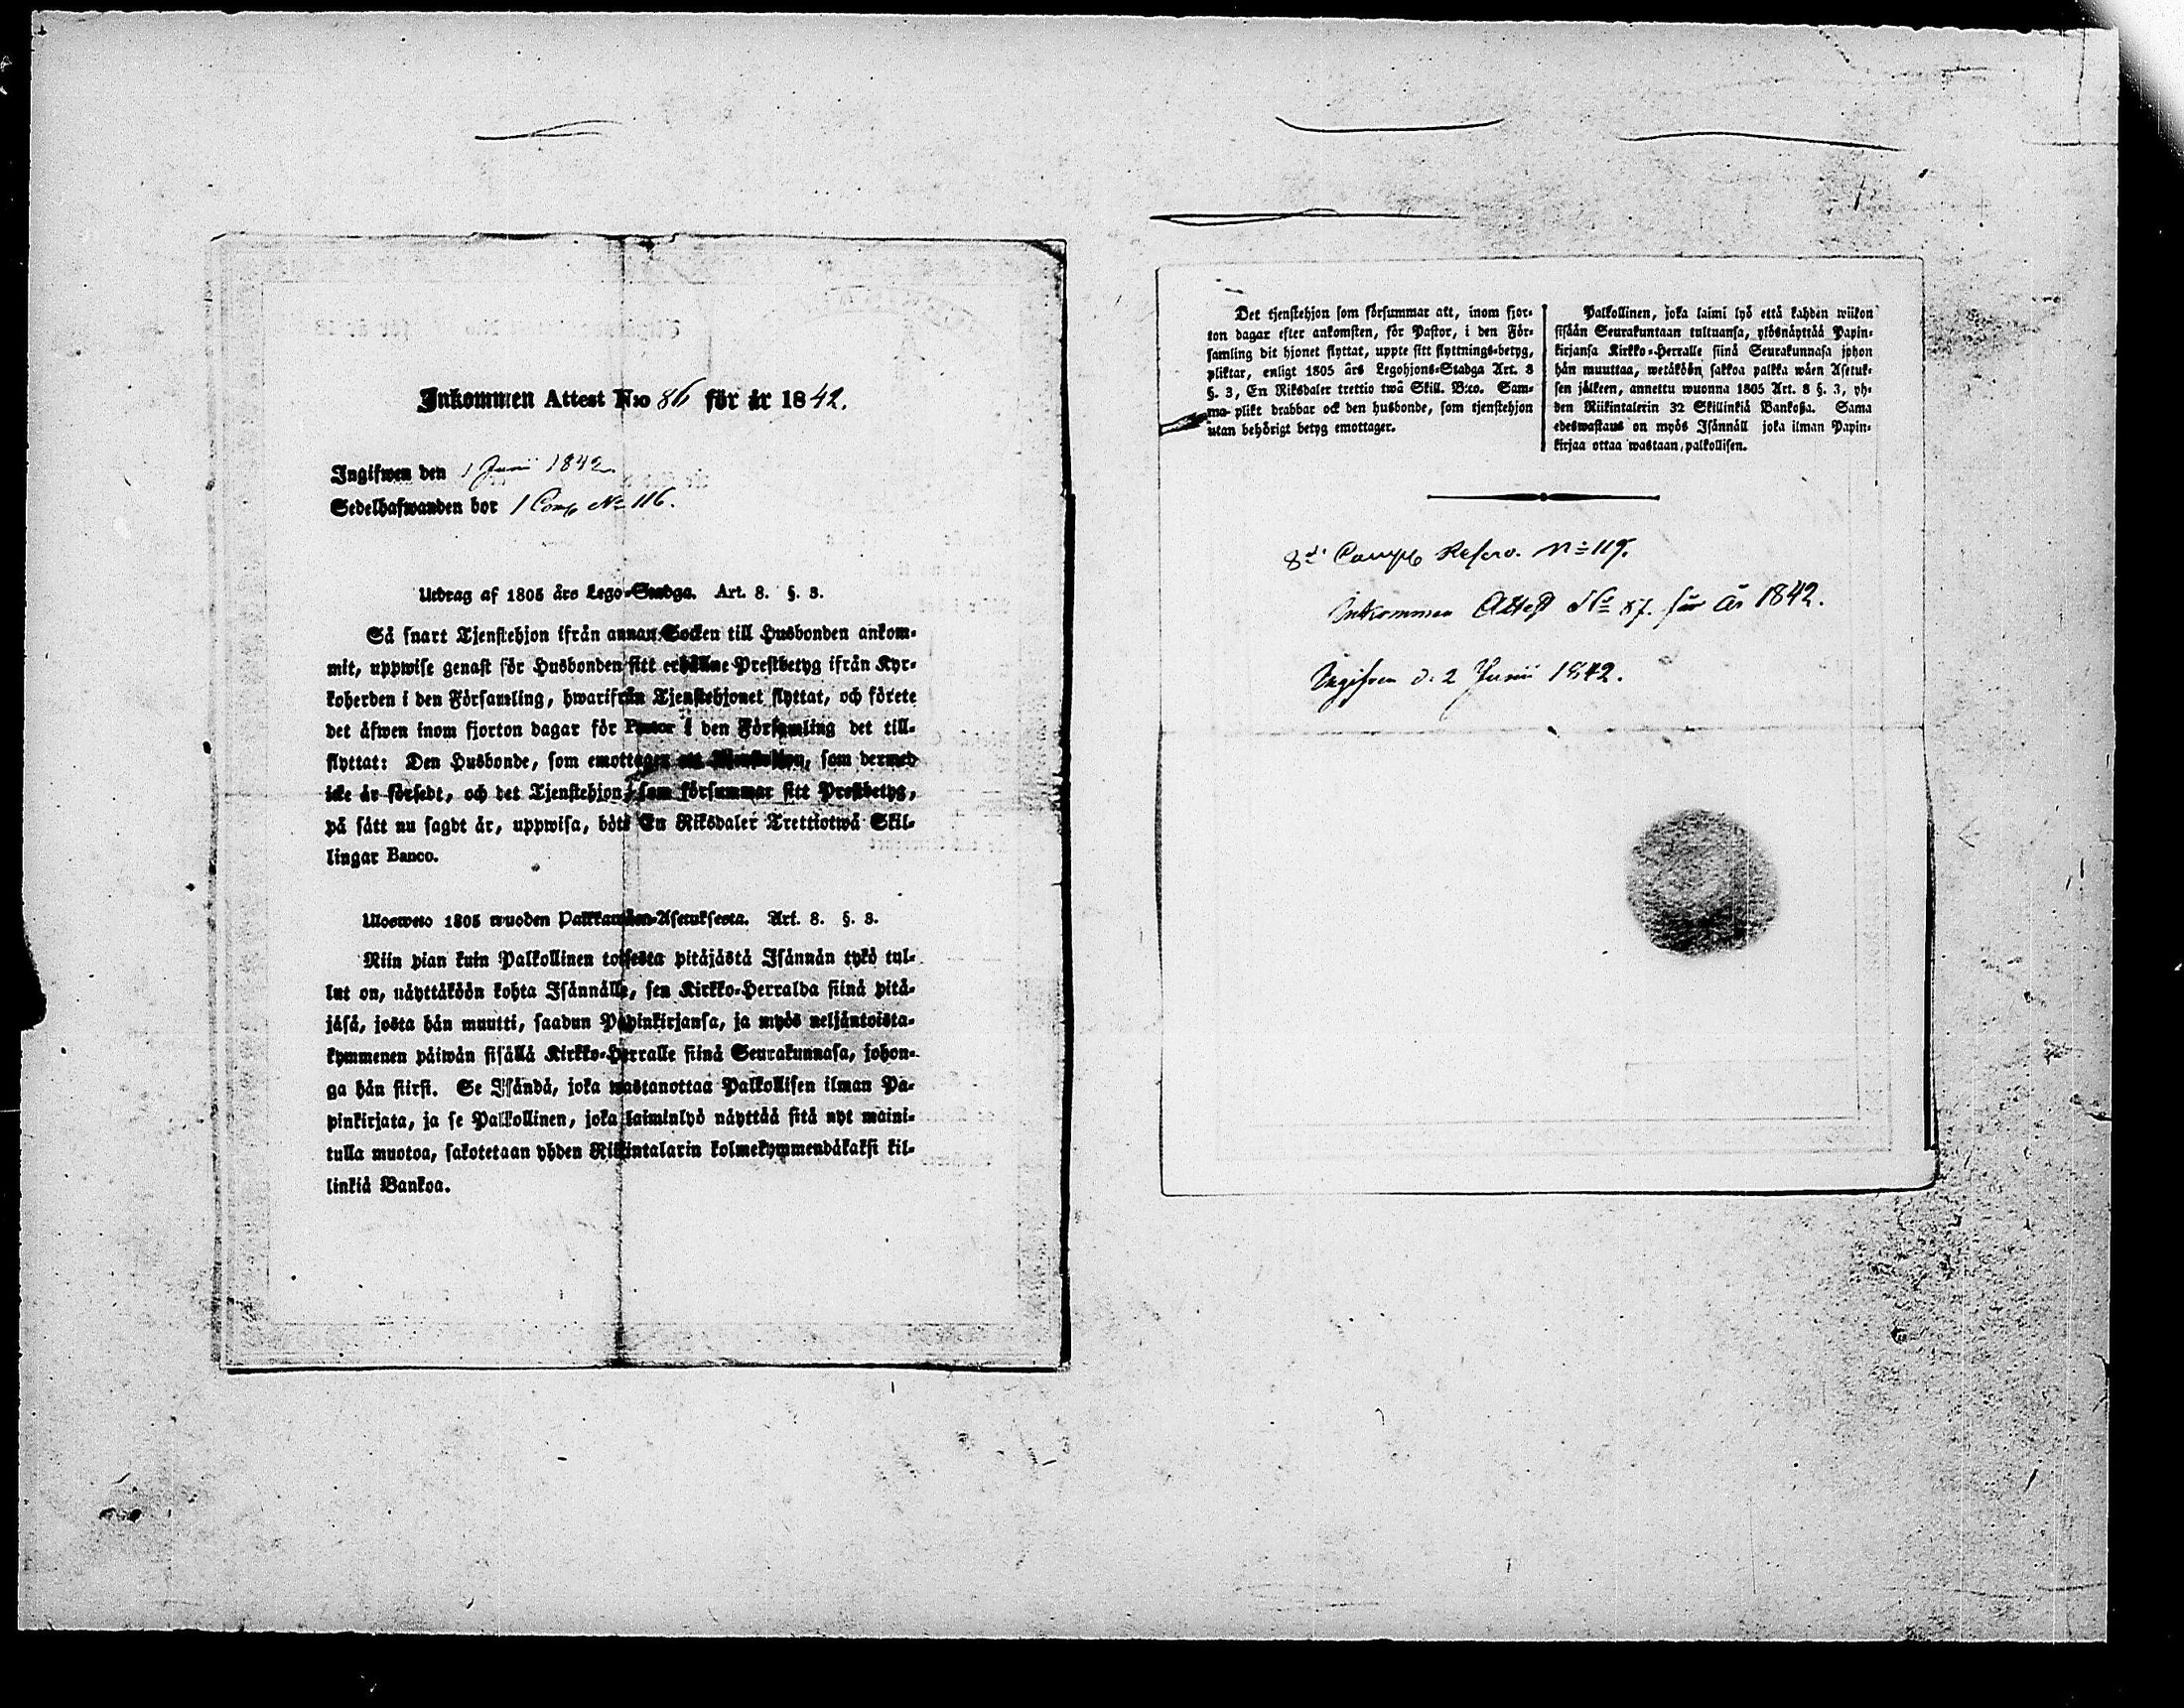 Inkommen Attest N:o 86 för år 1842.
Ingifwen den 1 Junii 1842.
Sedelhafwanden bor 1 Comp No 116.
Utdrag af 1805 års Lego-Stadga. Art. 8. §. 3.
Så snart Tjenstehjon ifrån annan Socken till Husbonden ankom-
mit, uppwise genast för Husbonden sitt erhållne Prestbetyg ifrån Kyr-
koherden i den Församling, hwarifrån Tjenstehjonet flyttat, och förete
det äfwen inom fjorton dagar för Pastor i den Församling det till-
flyttat: Den Husbonde, som emottager ett Tjenstehjon, som dermed
icke är försedt, och det Tjenstehjon, som försummar sitt Prestbetyg,
på sätt nu sagdt är, uppwisa, böte En Riksdaler Trettiotwå Skil-
lingar Banco.
Ulosweto 1805 wuoden Palkkawäen-Asetuksesta. Art. 8. §. 3.
Niin pian kuin Palkollinen toisesta pitäjästä Isännän tykö tul-
lut on, näyttäköön kohta Isännälle, sen Kirkko-Herralda siinä pitä-
jäsä, josta hän muutti, saadun Papinkirjansa, ja myös neljäntoista-
kymmenen päiwän sisällä Kirkko-Herralle siinä Seurakunnasa, johon-
ga hän siirsi. Se Isändä, joka wastanottaa Palkollisen ilman Pa-
pinkirjata, ja se Palkollinen, joka laiminlyö näyttää sitä nyt maini-
tulla muotoa, sakotetaan yhden Riikintalarin kolmekymmendäkaksi kil-
linkiä Bankoa.
Det tjenstehjon som försummar att, inom fjor-
ton dagar efter ankomsten, för Pastor, i den För-
samling dit hjonet flyttat, uppte sitt flyttnings-betyg,
pliktar, enligt 1805 års Legohjons-Stadga Art. 8
§. 3, En Riksdaler trettio twå Skill. B:co. Sam-
ma plikt drabbar ock den husbonde, som tjenstehjon
utan behörigt betyg emottager.
Palkollinen, joka laimi lyö että kahden wiikon
sisään Seurakuntaan tultuansa, ylösnäyttää Papin-
kirjansa Kirkko-Herralle siinä Seurakunnasa johon
hän muuttaa, wetäköön sakkoa palkka wäen Asetuk-
sen jälkeen, annettu wuonna 1805 Art. 8 §. 3, yh-
den Riikintalerin 32 Skillinkiä Bankoßa. Sama
edeswastaus on myös Isännäll joka ilman Papin-
kirjaa ottaa wastaan palkollisen.
8de Comp Reserv. No 119.
Inkommen Attest No 87. för år 1842.
Ingifven d. 2 Junii 1842.